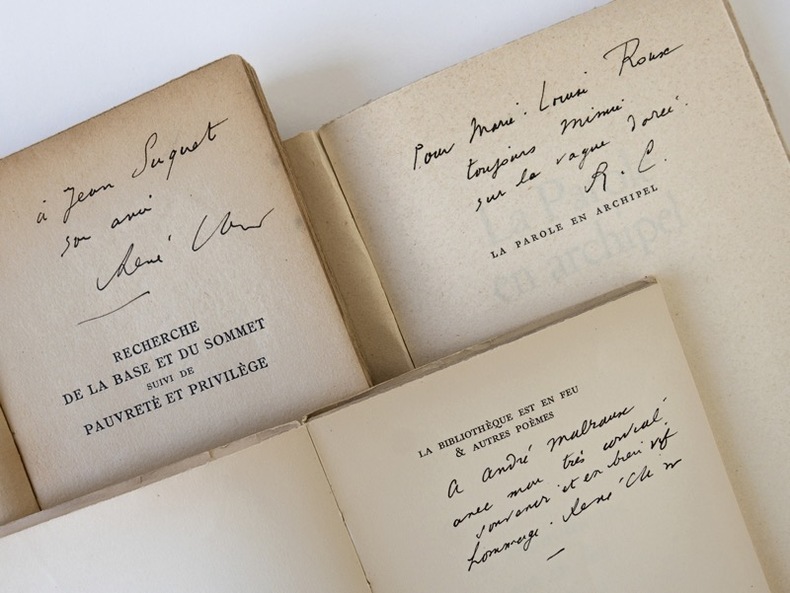 à Jean Suquet
son ami
René Char
RECHERCHE
DE LA BASE ET DU SOMMET
SUIVI DE
PAUVRETÉ ET PRIVILÈGE
Pour Marie-Louise Roux
toujours
sur la vague dorée.
R. C.
LA PAROLE EN ARCHIPEL
La Parole
en archipel
LA BIBLIOTHÈQUE EST EN FEU
& AUTRES POÈMES
A André Malraux
avec mon très cordial
souvenir et en bien vif
hommage. René Char